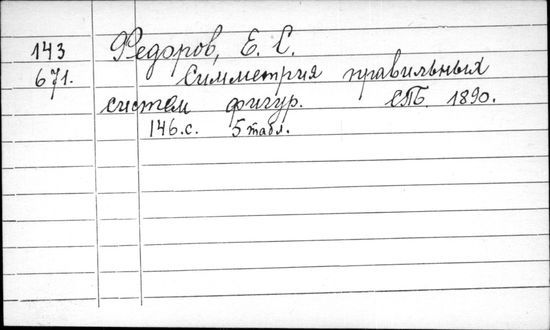 143 Федоров, Е. С.
671. Симметрия правильных
систем фигур. СПБ. 1890.
146.с. 5 табл.